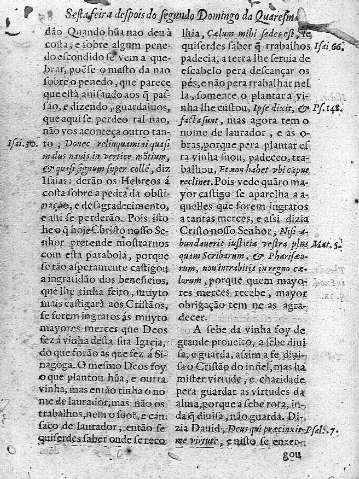 Sesta feira despois do segundo Domingo da Quaresma
dão Quando hũa nao deu à
costa, e sobre algum pene-
do escondido se vem a que-
brar, poẽse o masto da nao
sobre o penedo, que parece
que està auisando aos q̃ paf-
são, e dizendo, guardaiuos,
que aqui se perdeo tal nao,
não vos aconteça outro tan-
Isai. 30. to, Donec relinquamini quasi
malus nauis in vertice mõtium,
& quasi signum super collẽ, diz
Isaias: derão os Hebreos á
costa sobre a pedra da obsti-
nação, e desagradecimento,
e ahi se perderão. Pois isto
he o q̃ hoje Christo nosso Se-
nhor pretende mostrarnos
com esta parabola, porque
se tão asperamente castigou
a ingratidão dos beneficios,
que lhe tinha feito, muyto
mais castigará aos Cristãos,
se forem ingratos ás muyto
mayores merces que Deos
fez à vinha desta sua Igreja,
do que forão as que fez á Si-
nagoga. O mesmo Deos foy
o que plantou hũa, e outra
vinha, mas então tinha o no-
me de laurador, mas não os
trabalhos, nem o suor, e can-
saço de laurador, então se
quiserdes saber onde se reco
lhia, Cœlum mihi sedes est, se
quiserdes saber q̃ trabalhos Isai 66.
padecia, a terra lhe seruia de
escabelo pera descançar os
pès, e não pera trabalhar nel-
la, somente o plantar a vi-
nha lhe custou, Ipse dixit, & Ps. 148.
facta sunt, mas agora tem o
nome de laurador, e as o-
bras, porque pera plantar es-
ta vinha suou, padeceo, tra-
balhou, Et non habet vbi caput
reclinet. Pois vede quão ma-
yor castigo se aparelha a a-
quelles que forem ingratos
a tantas merces, e assi dizia
Cristo nosso Senhor, Nisi a-
bundauerit iustitia vestra plus Mat. 5.
quim Scribarum, & Pharisæo-
rum, non intrabitis in regno cœ-
lorum, porque quem mayo-
res merces recebe, mayor
obrigação tem ne as agra-
decer.
A sebe da vinha foy de
grande proueito, a sebe diui-
sa, e guarda, assim a fe diui-
sa o Cristão do infiel, mas ha
mister virtude, e charidade
pera guardar as virtudes da
alma, porque a sebe rota, in-
da q̃ diuisa, não guarda. Di-
zia Dauid, Deus qui præcinxit Psal. 17.
me virtute, e nisto se enxer-
gou